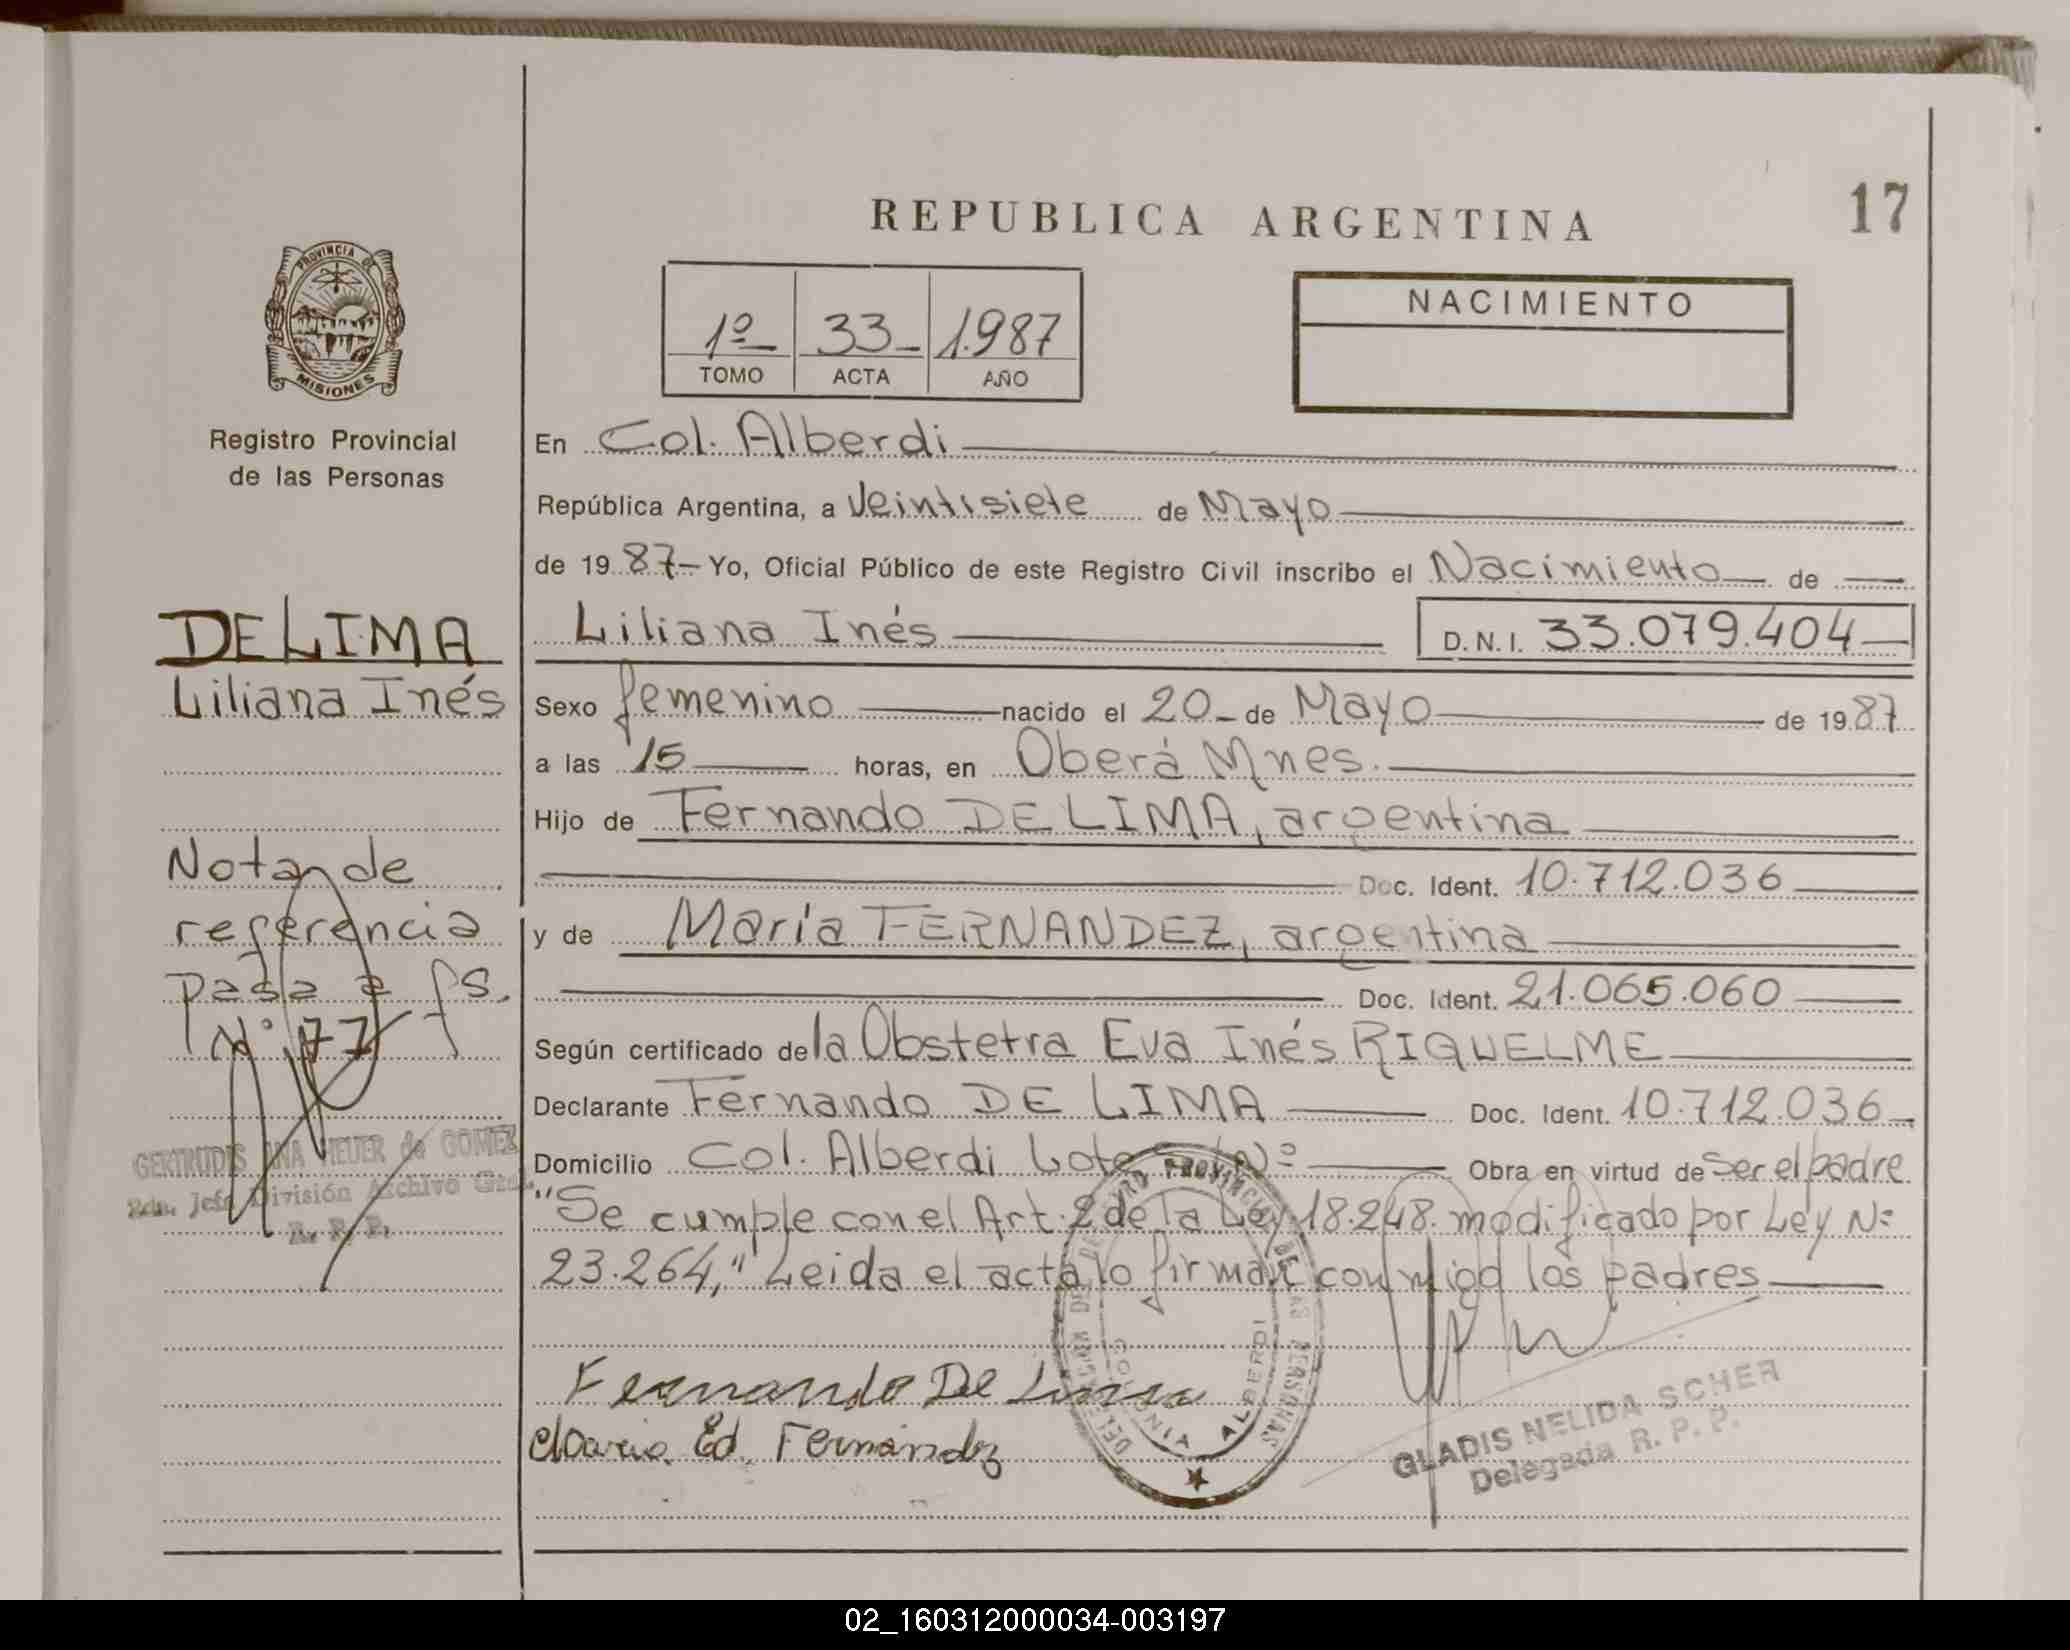 REPUBLICA ARGENTINA
17
PROVINCIA DE
MISIONES
Registro Provincial
de las Personas
1º 33 1.987
TOMO ACTA AÑO
NACIMIENTO
En Col. Alberdi
República Argentina, a Veintisiete de Mayo
de 19 87 Yo, Oficial Público de este Registro Civil inscribo el Nacimiento de
Liliana Inés D.N.I. 33.079.404
Sexo femenino nacido el 20 de Mayo de 19 87
a las 15 horas, en Oberá Mnes.
Hijo de Fernando DE LIMA, argentina
Doc. Ident. 10.712.036
y de María FERNANDEZ, argentina
Doc. Ident. 21.065.060
Según certificado de la Obstetra Eva Inés RIQUELME
Declarante Fernando DE LIMA Doc. Ident. 10.712.036
Domicilio Col. Alberdi Lote Nº Obra en virtud de Ser el padre
"Se cumple con el Art. 2 de la Ley 18.248 modificado por Ley Nº
23.264," Leida el acta lo firman conmigo los padres
Fernando De Lima
Ed. Fernández
COLONIA ALBERDI
GLADIS NELIDA SCHER
Delegada R. P. P.
DE LIMA
Liliana Inés
Nota de
referencia
pasa a fs.
Nº 77
GERTRUDIS ANA HEUER de GOMEZ
Jefe División Archivo Gral.
R. P. P.
02_160312000034-003197